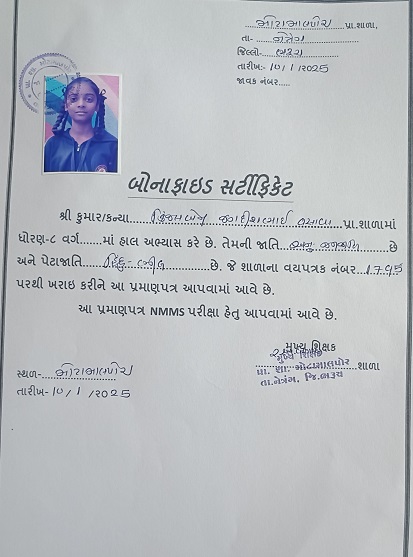 મોટામાલપોર પ્રા.શાળા,
તા- નેત્રંગ
જિલ્લો- ભરૂચ
તારીખ:- ૧૦/૧/૨૦૨૫
જાવક નંબર.....
બોનાફાઇડ સર્ટીફિકેટ
શ્રી કુમાર/કન્યા જગદીશભાઈ વસાવા પ્રા.શાળામાં
ધોરણ-૮ વર્ગ......માં હાલ અભ્યાસ કરે છે. તેમની જાતિ અનુ જનજાતિ છે
અને પેટાજાતિ હિન્દુ-ભીલ છે. જે શાળાના વયપત્રક નંબર 1795
પરથી ખરાઇ કરીને આ પ્રમાણપત્ર આપવામાં આવે છે.
આ પ્રમાણપત્ર NMMS પરીક્ષા હેતુ આપવામાં આવે છે.
મુખ્ય શિક્ષક
મુખ્ય શિક્ષક
શાળા
પ્રા. શા. મોટામાલપોર
તા.નેત્રંગ, જિ.ભરૂચ
સ્થળ- મોટામાલપોર
તારીખ- ૧૦/૧/૨૦૨૫